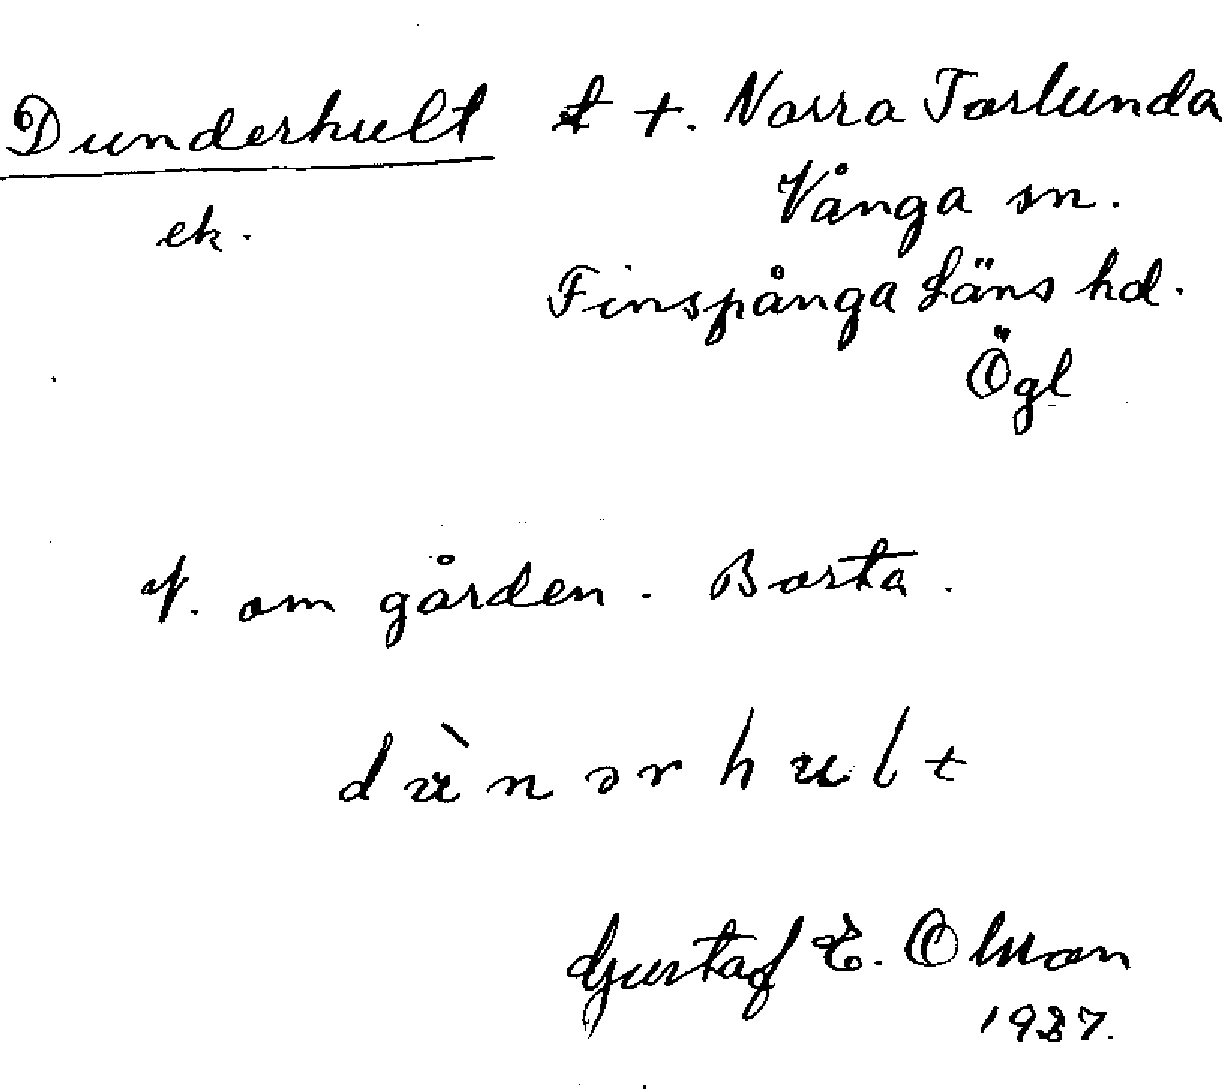 Dunderhult t t. Norra Torlunda
Vånga sn.
ek.
Finspånga läns hd.
Ögl
N. om gården. Borta.
dùnərhult
Gustaf E. Olsson
1937.